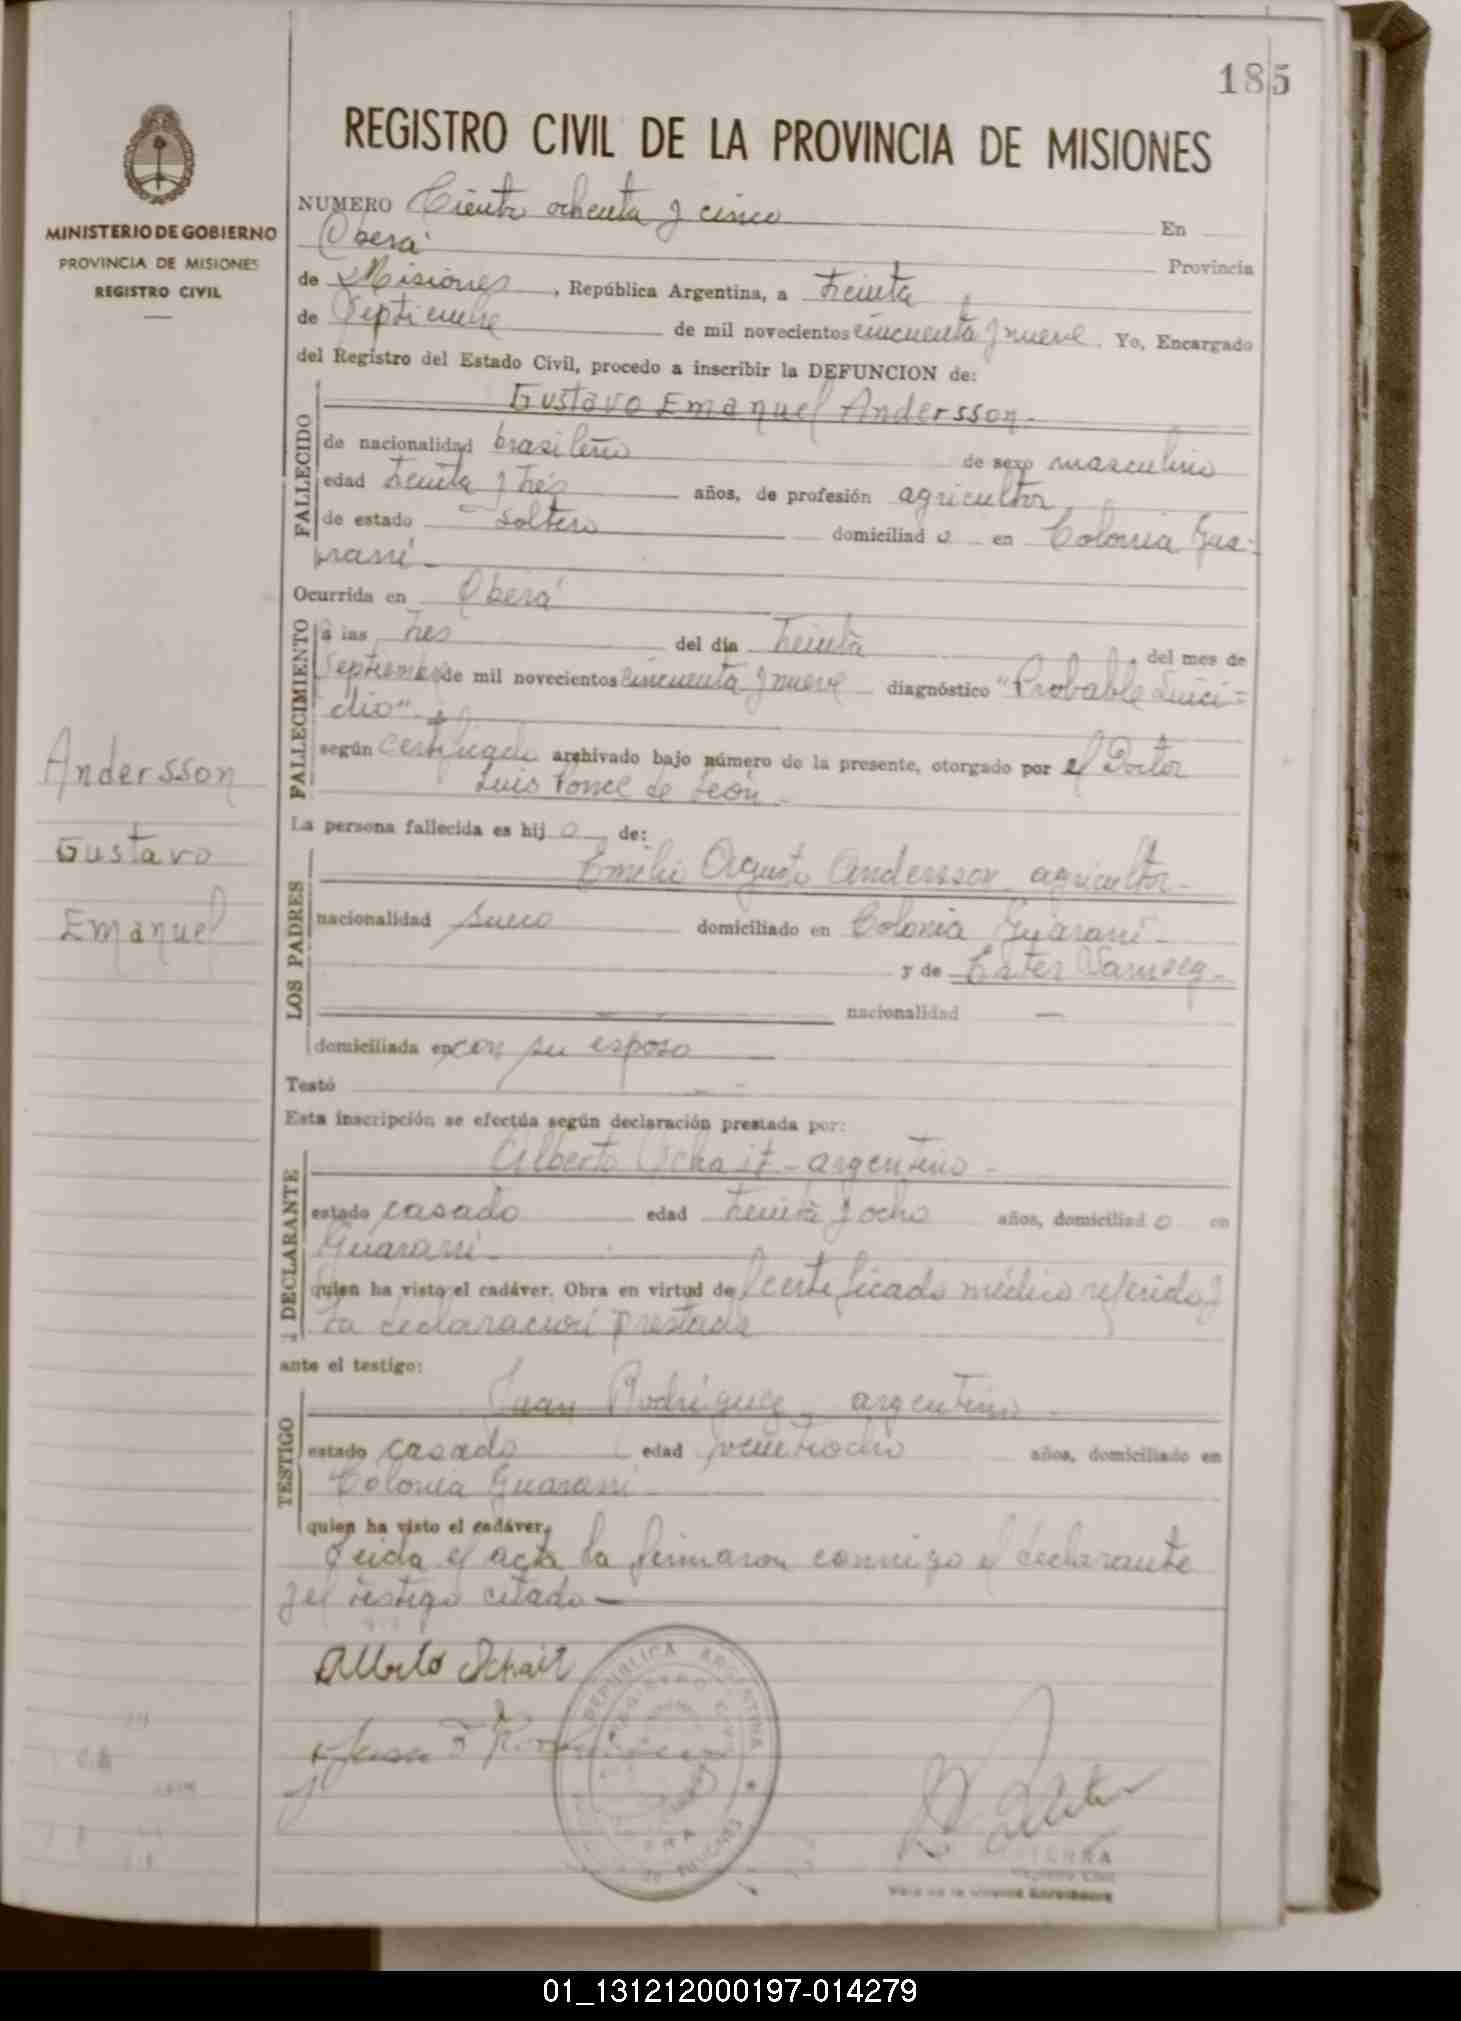 185
REGISTRO CIVIL DE LA PROVINCIA DE MISIONES
MINISTERIO DE GOBIERNO
PROVINCIA DE MISIONES
REGISTRO CIVIL
NUMERO Ciento ochenta y cinco En
Oberá Provincia
de Misiones, República Argentina, a treinta
de Septiembre de mil novecientos cincuenta y nueve. Yo, Encargado
del Registro del Estado Civil, procedo a inscribir la DEFUNCION de:
FALLECIDO
Gustavo Emanuel Andersson.-
de nacionalidad brasileño de sexo masculino
edad treinta y trés años, de profesión agricultor
de estado soltero domiciliad o en Colonia Gua-
raní.-
Ocurrida en Oberá
FALLECIMIENTO
a las tres del día treinta del mes de
Septiembre de mil novecientos cincuenta y nueve diagnóstico "Probable suici=
dio".-
según certificado archivado bajo número de la presente, otorgado por el Doctor
Luis Ponce de León.-
Andersson
Gustavo
Emanuel
La persona fallecida es hij o de:
LOS PADRES
Emilio Augusto Andersson agricultor-
nacionalidad sueco domiciliado en Colonia Guaraní-
y de Ester
nacionalidad —
domiciliada en con su esposo
Testó
Esta inscripción se efectúa según declaración prestada por:
DECLARANTE
Alberto - argentino -
estado casado edad treinta y ocho años, domiciliad o en
Guaraní-
quien ha visto el cadáver. Obra en virtud del certificado médico referido y
la declaración prestada
ante el testigo:
TESTIGO
Juan Rodríguez, argentino -
estado casado edad veintiocho años, domiciliado en
Colonia Guaraní-
quien ha visto el cadáver.
Leida el acta la firmaron conmigo el declarante
y el testigo citado—
Alberto
REPUBLICA ARGENTINA
REGISTRO CIVIL
MISIONES
01_131212000197-014279